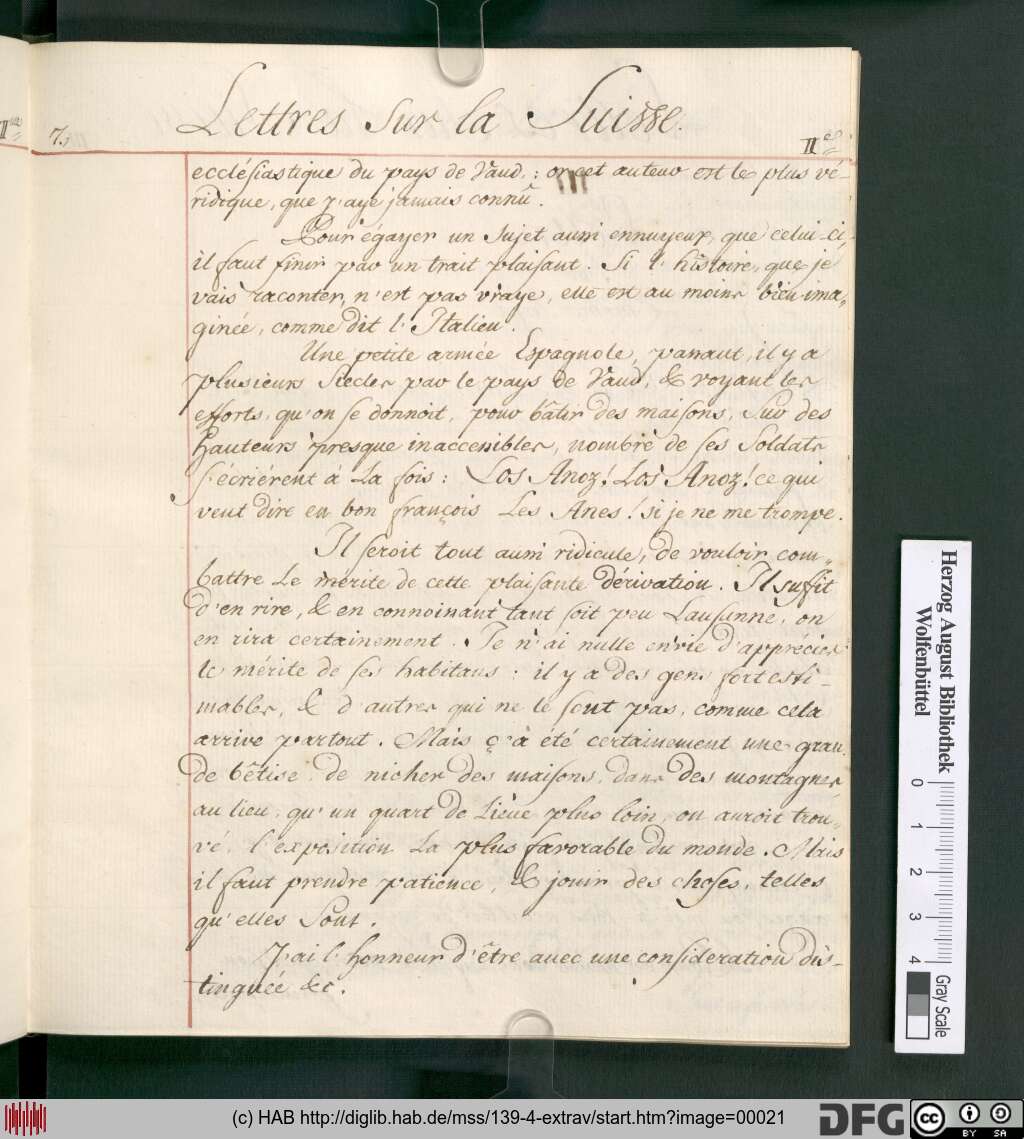 7.,
Lettres sur la Suisse.
II.
ecclésiastique du pays de Vaud, : or cet auteur est le plus vé-
ridique, que j'aye jamais connû.
Pour égayer un Sujet aussi ennuyeux, que celui-ci,
il faut finir par un trait plaisant. Si l'histoire, que je
vais raconter, n'est pas vraye, elle est au moins bien ima-
ginée, comme dit l'Italien.
Une petite armée Espagnole, passant, il y a
plusieurs Siecles par le pays de Vaud, & voyant les
efforts, qu'on se donnoit, pour bâtir des maisons, Sur des
hauteurs presque inaccessibles, nombre de ses Soldats
s'écriérent à La fois : Los Anoz! Los Anoz! ce qui
veut dire en bon françois Les Anes! si je ne me trompe.
Il seroit tout aussi ridicule, de vouloir com-
battre Le mérite de cette plaisante dérivation. Il suffit
d'en rire, & en connoissant tant soit peu Lausanne, on
en rira certainement. Je n'ai nulle envie d'apprécier
le mérite de ses habitans : il y a des gens fort esti-
mables, & d'autres qui ne le sont pas, comme cela
arrive partout. Mais ç'à été certainement une gran-
de bêtise, de nicher des maisons, dans des montagnes
au lieu, qu'un quart de Liéue plus loin, on auroit trou-
vé, l'exposition La plus favorable du monde. Mais
il faut prendre patience, & jouir des choses, telles
qu'elles Sont.
J'ai l'honneur d'être avec une consideration dis-
tinguée &c.
Herzog August Bibliothek
Wolfenbüttel
0 1 2 3 4
Gray Scale
(c) HAB http://diglib.hab.de/mss/139-4-extrav/start.htm?image=00021
DFG
cc BY SA